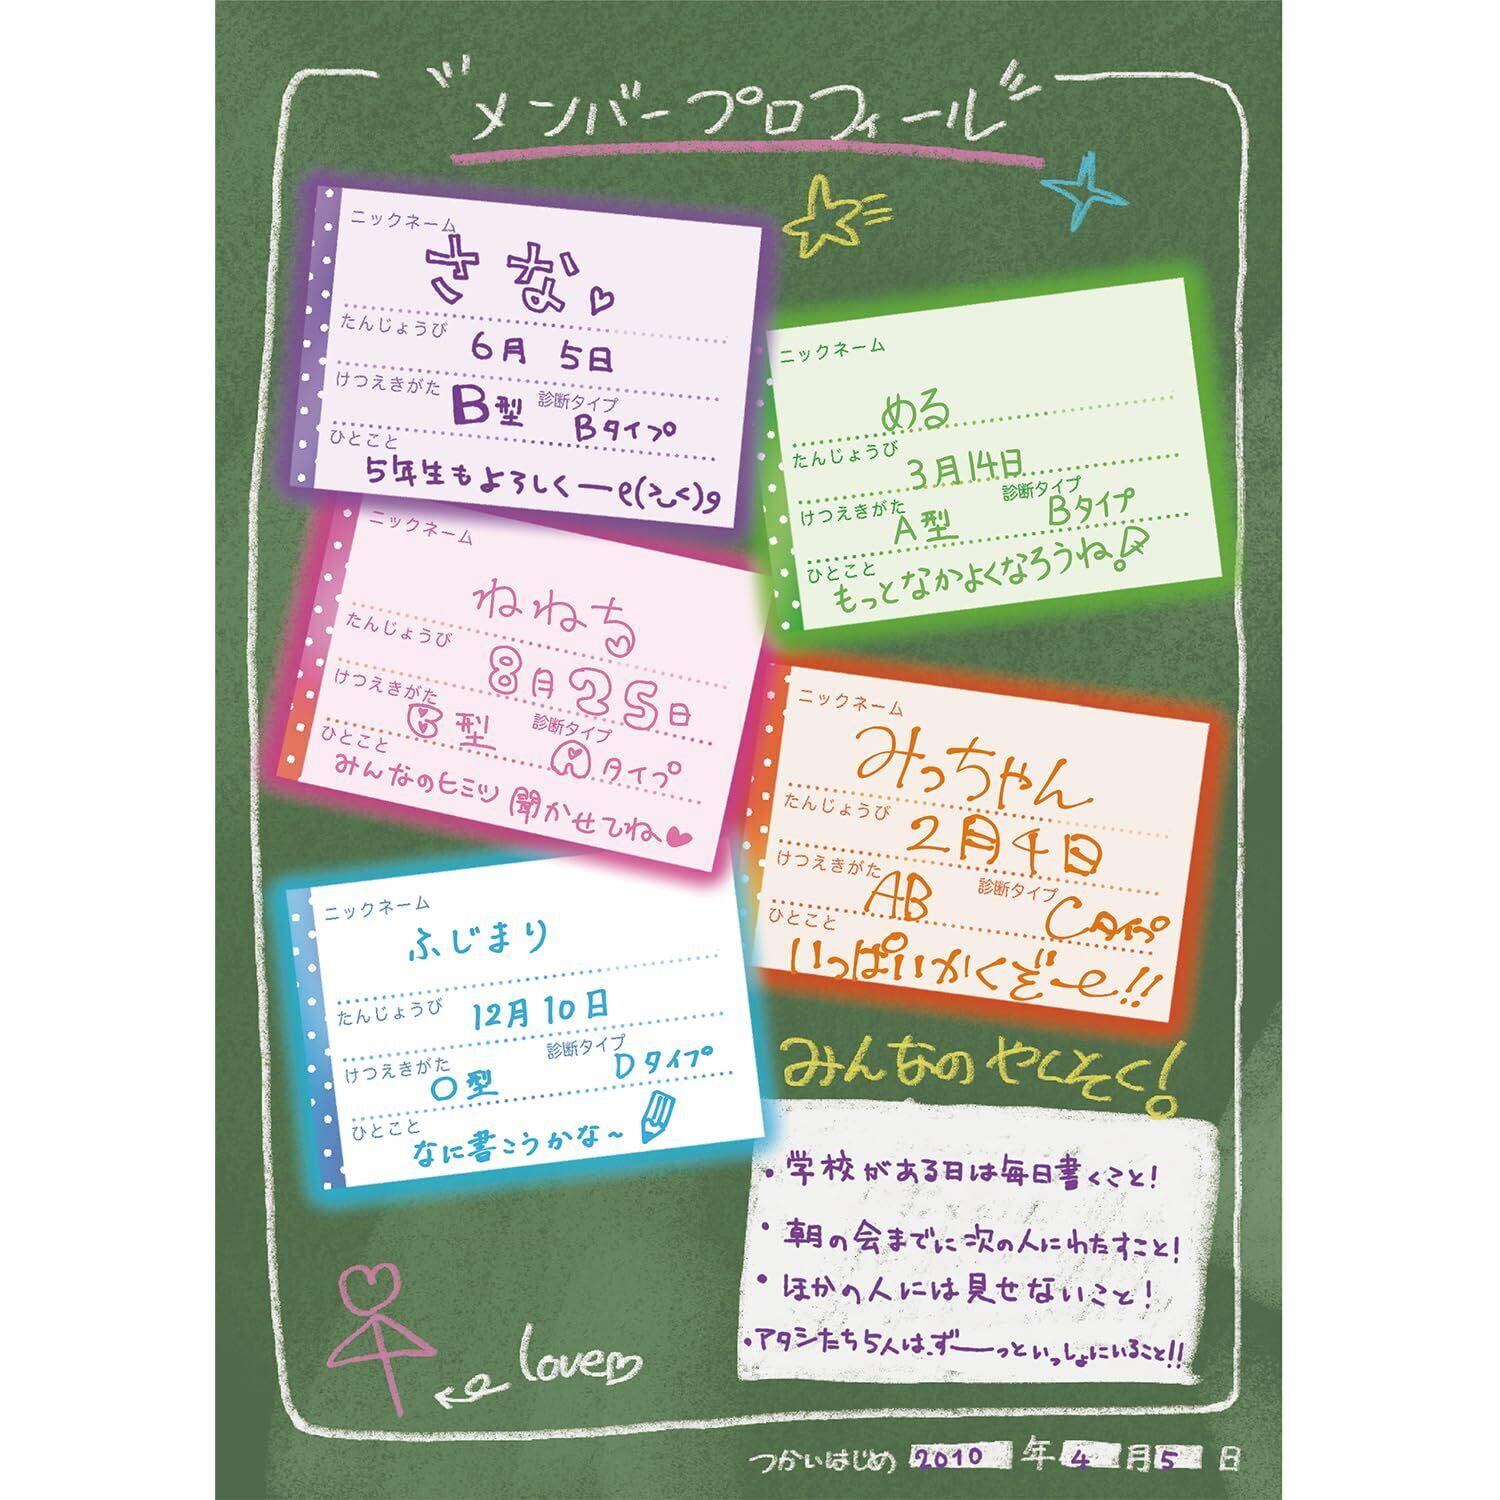 メンバープロフィール
ニックネーム
さな
たんじょうび
6月 5日
けつえきがた B型 診断タイプ Bタイプ
ひとこと
5年生もよろしくーe(>◡<)9
ニックネーム
める
たんじょうび 3月14日
けつえきがた A型 診断タイプ Bタイプ
ひとこと
もっとなかよくなろうね!
ニックネーム
ねねち
たんじょうび
8月25日
けつえきがた B型 診断タイプ Aタイプ
ひとこと
みんなのヒミツ聞かせてね♥
ニックネーム
みっちゃん
たんじょうび 2月4日
けつえきがた AB 診断タイプ Cタイプ
ひとこと
いっぱいかくぞーe!!
ニックネーム
ふじまり
たんじょうび 12月10日
けつえきがた O型 診断タイプ Dタイプ
ひとこと
なに書こうかな~
みんなのやくそく!
・学校がある日は毎日書くこと!
・朝の会までに次の人にわたすこと!
・ほかの人には見せないこと!
・アタシたち5人は、ずーーっといっしょにいること!!
love♡
つかいはじめ 2010年4月5日